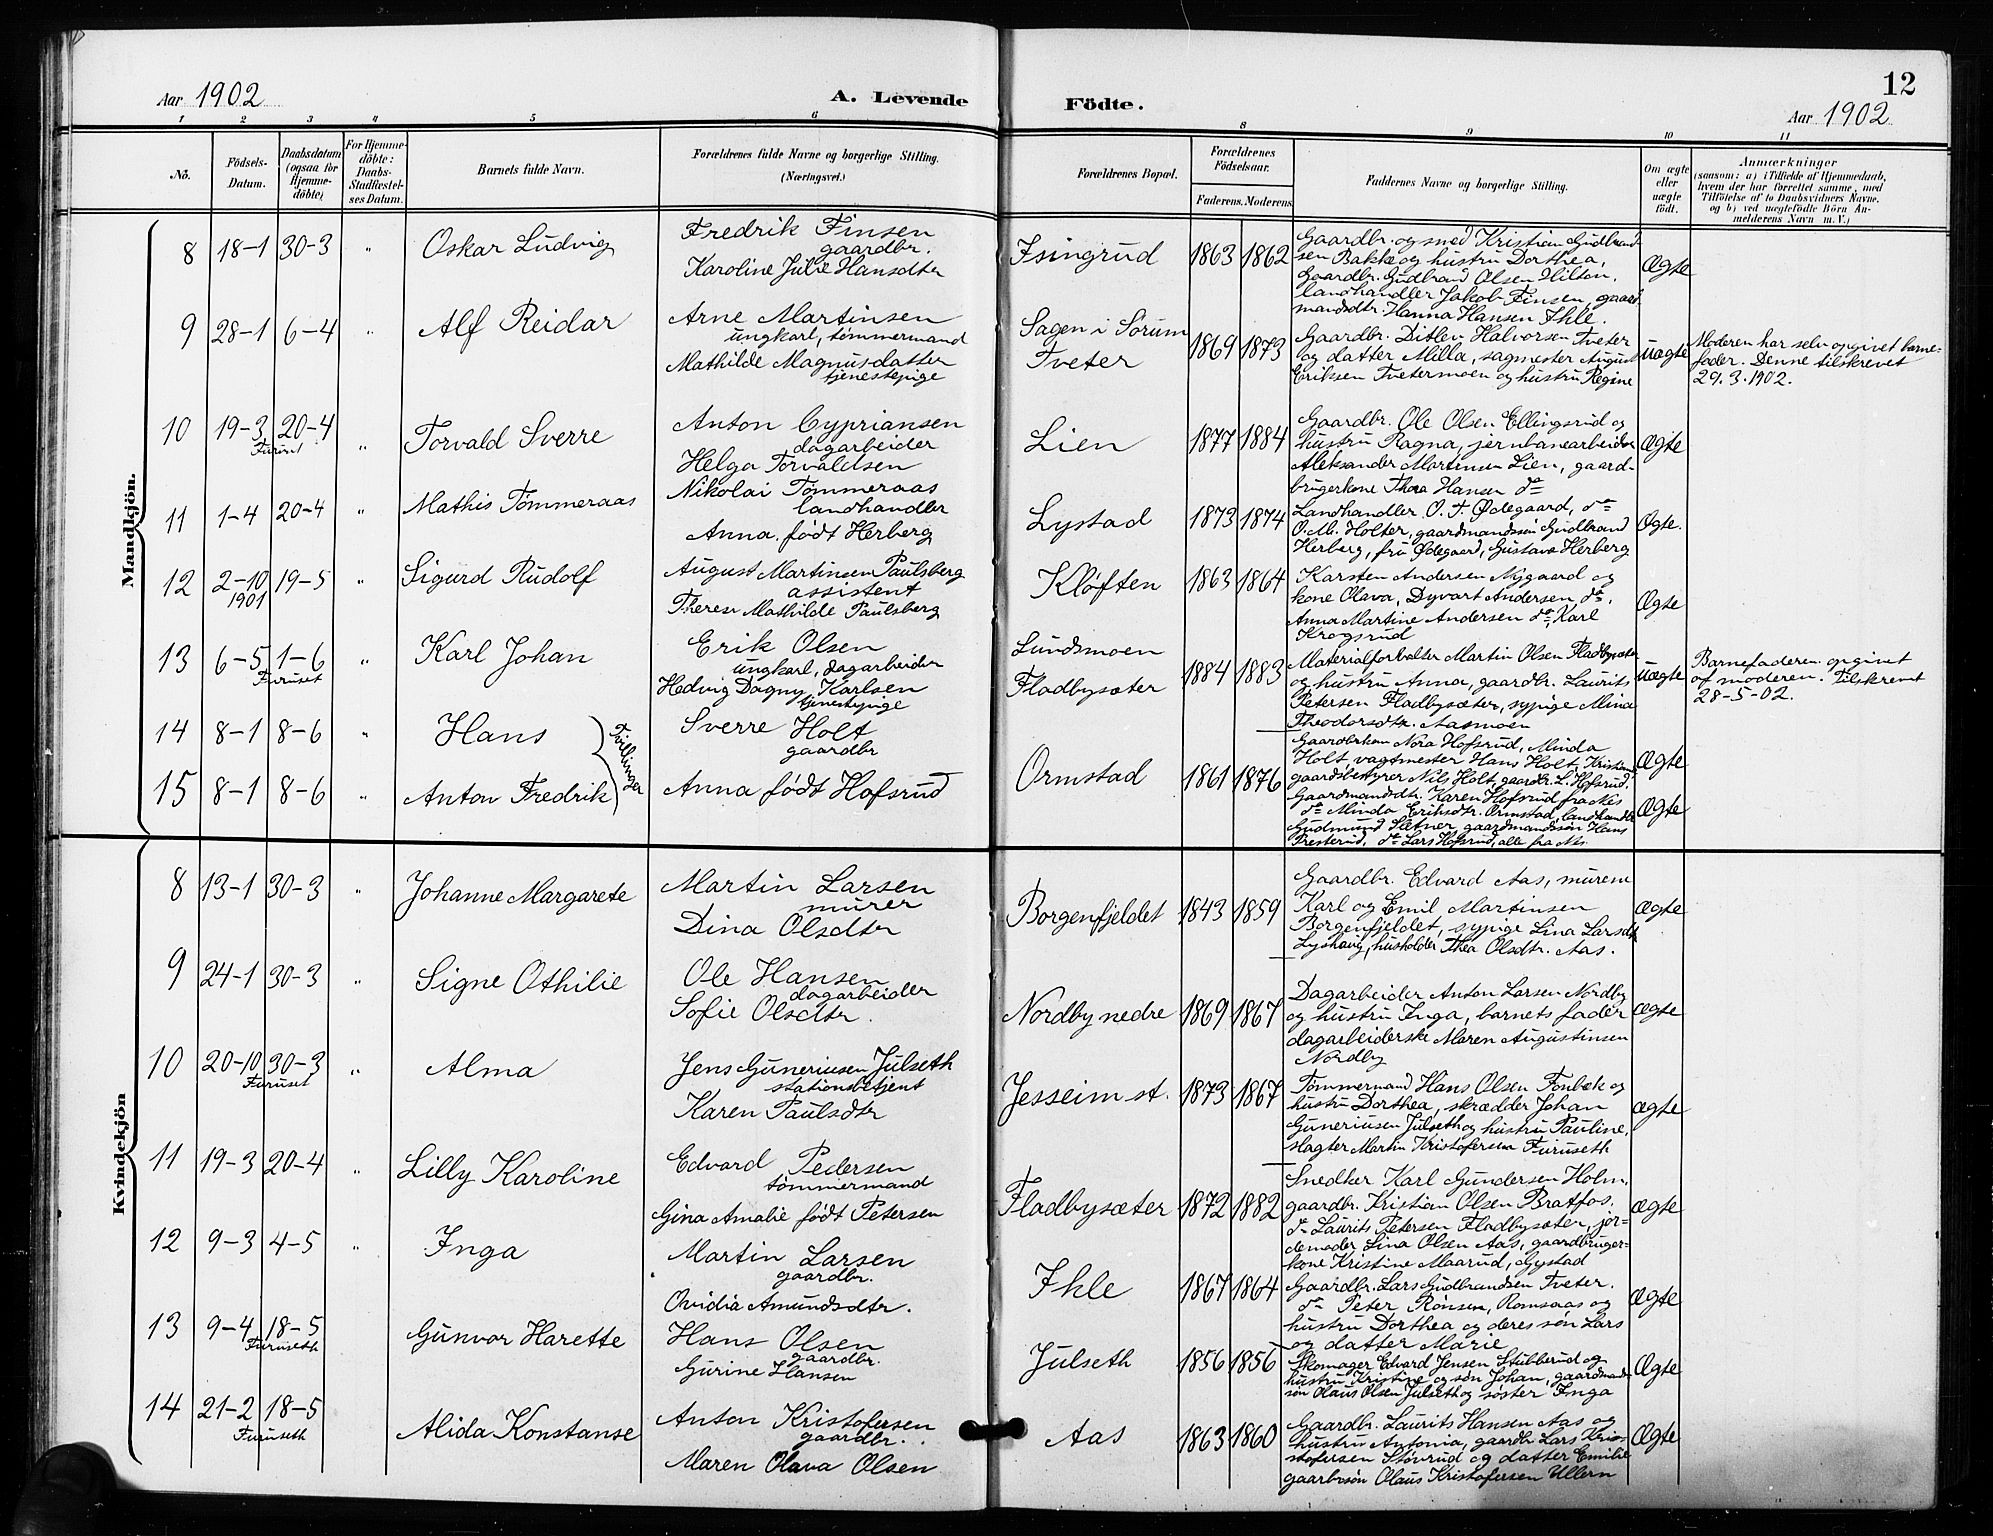 Aar 1902
A. Levende
Födte.
12
Aar 1902
1 2 3 4 5 6 8 9 10 11
No.
Födsels-
Datum.
Daabsdatum
(ogsaa for
Hjemme-
döbte)
For Hjemme-
döbte:
Daabs-
Stadfæstel-
ses Datum.
Barnets fulde Navn.
Forældrenes fulde Navne og borgerlige Stilling.
(Næringsvei.)
Forældrenes Bopæl.
Forældrenes
Födselsaar.
Faderens. Moderens.
Faddernes Navne og borgerlige Stilling.
Om ægte
eller
uægte
födt.
Anmærkninger
(saasom: a) i Tilfælde af Hjemmedaab,
hvem der har forrettet samme, med
Tilföielse af to Daabsvidners Navne.
og b) ved uægtefödte Börn An-
melderens Navn m. V.)
Mandkjön.
8 18-1 30-3 " Oskar Ludvig
Fredrik Finsen
gaardbr.
Karoline Julie Hansdtr
Isingrud 1863 1862
Gaardbr. og smed Kristian Gudbrand-
sen Bakke og hustru Dorthea,
Gaardbr. Gudbrand Olsen Hilton,
landhandler Jakob Finsen, gaard-
mandsdtr. Hanna Hansen Ihle.
Ægte
9 28-1 6-4 " Alf Reidar
Arne Martinsen
ungkarl, tømmermand
Mathilde Magnusdatter
tjenestepige
Sagen i Sørum
Tveter
1869 1873
Gaardbr. Ditlev Halvorsen Tveter
og datter Milla, sagmester August
Eriksen Tvetermoen og hustru Regine
uægte
Moderen har selv opgivet barne-
fader. Denne tilskrevet
29.3.1902.
10 19-3 20-4 " Torvald Sverre
Furuset
Anton Cypriansen
dagarbeider
Helga Torvaldsen
Lien 1877 1884
Gaardbr. Ole Olsen Ellingsrud og
hustru Ragna, jernbanearbeider
Aleksander Martinsen Lien, gaard-
brugerkone Thora Hansen do
Ægte
11 1-4 20-4 " Mathis Tømmeraas
Nikolai Tømmeraas
landhandler
Anna født Herberg
Lystad 1873 1874
Landhandler O. T. Ødegaard, do
O. M. Holter, gaardmandssøn Gudbrand
Herberg, fru Ødegaard, Gustava Herberg
Ægte.
12 2-10 19-5 " Sigurd Rudolf
1901
August Martinsen Paulsberg
assistent
Therese Mathilde Paulsberg
Kløften 1863 1864
Karsten Andersen Nygaard og
kone Olava, Dyvart Andersen do,
Anna Martine Andersen do, Karl
Krogsrud
Ægte
13 6-5 1-6 " Karl Johan
Furuset
Erik Olsen
ungkarl, dagarbeider
Hedvig Dagny Karlsen
tjenestepige
Lundsmoen
Fladbysæter
1884 1883
Materialforvalter Martin Olsen Fladbysæter
og hustru Anna, gaardbr. Laurits
Petersen Fladbysæter, sypige Mina
Theodorsdtr. Aasmoen
uægte
Barnefaderen opgivet
af moderen. Tilskrevet
28-5-02.
14 8-1 8-6 " Hans
15 8-1 8-6 " Anton Fredrik
Tvillinger
Sverre Holt
gaardbr
Anna født Hofsrud
Ormstad 1861 1876
Gaardbrkone Nora Hofsrud, Minda
Holt, vagtmester Hans Holt, Kristiania,
gaardsbestyrer Nils Holt, gaardbr. L. Hofsrud,
Gaardmandsdtr. Karen Hofsrud fra Nes
do Minda Eriksdtr. Ormstad, landhandler
Gudmund Sætner, gaardmandssøn Hans
Presterud, do Lars Hofsrud, alle fra Nes.
Ægte
Ægte
Kvindekjön
8 13-1 30-3 " Johanne Margarete
Martin Larsen
murer
Dina Olsdtr
Borgenfjeldet 1843 1859
Gaardbr. Edvard Aas, murerne
Karl og Emil Martinsen
Borgenfjeldet, sypige Lina Larsdtr
Lyshaug, husholder Thea Olsdtr. Aas.
Ægte
9 24-1 30-3 " Signe Othilie
Ole Hansen
dagarbeider
Sofie Olsdtr.
Nordby nedre 1869 1867
Dagarbeider Anton Larsen Nordby
og hustru Inga, barnets fader
dagarbeiderske Maren Augustinsen
Nordby
Ægte
10 20-10 30-3 " Alma
Furuset
Jens Guneriusen Julseth
stationsbetjent
Karen Paulsdtr
Jesseim st. 1873 1867
Tømmermand Hans Olsen Fonbæk og
hustru Dorthea, skrædder Johan
Guneriusen Julseth og hustru Pauline,
slagter Martin Kristofersen Furuseth
ægte
11 19-3 20-4 " Lilly Karoline
Edvard Pedersen
tømmermand
Gina Amalie født Petersen
Fladbysæter 1872 1882
Snedker Karl Gundersen Holm,
gaardbr. Kristian Olsen Bratfos.
do Laurits Petersen Fladbysæter, jor-
demoder Lina Olsen Aas, gaardbruger-
kone Kristine Maarud, Gystad
Ægte
12 9-3 4-5 " Inga
Martin Larsen
gaardbr.
Ovidia Amundsdtr.
Ihle 1867 1864
Gaardbr. Lars Gudbrandsen Tveter.
do Peter Rønsen, Romsaas og
hustru Dorthea og deres søn Lars
og datter Marie
Ægte
13 9-4 18-5 Gunvor Harette
Furuseth
Hans Olsen
gaardbr.
Gurine Hansen
Julseth 1856 1856
Skomager Edvard Jensen Stubberud og
hustru Kristine og søn Johan, gaardmands-
søn Olaus Olsen Julseth og søster Inga
Ægte
14 21-2 18-5 Alida Konstanse
Furuseth
Anton Kristofersen
gaardbr.
Maren Olava Olsen
Aas 1863 1860
Gaardbr. Laurits Hansen Aas og
hustru Antonia, gaardbr Lars Kris-
tofersen Støvrud og datter Emilie
gaardbrsøn Olaus Kristofersen Ullern
Ægte